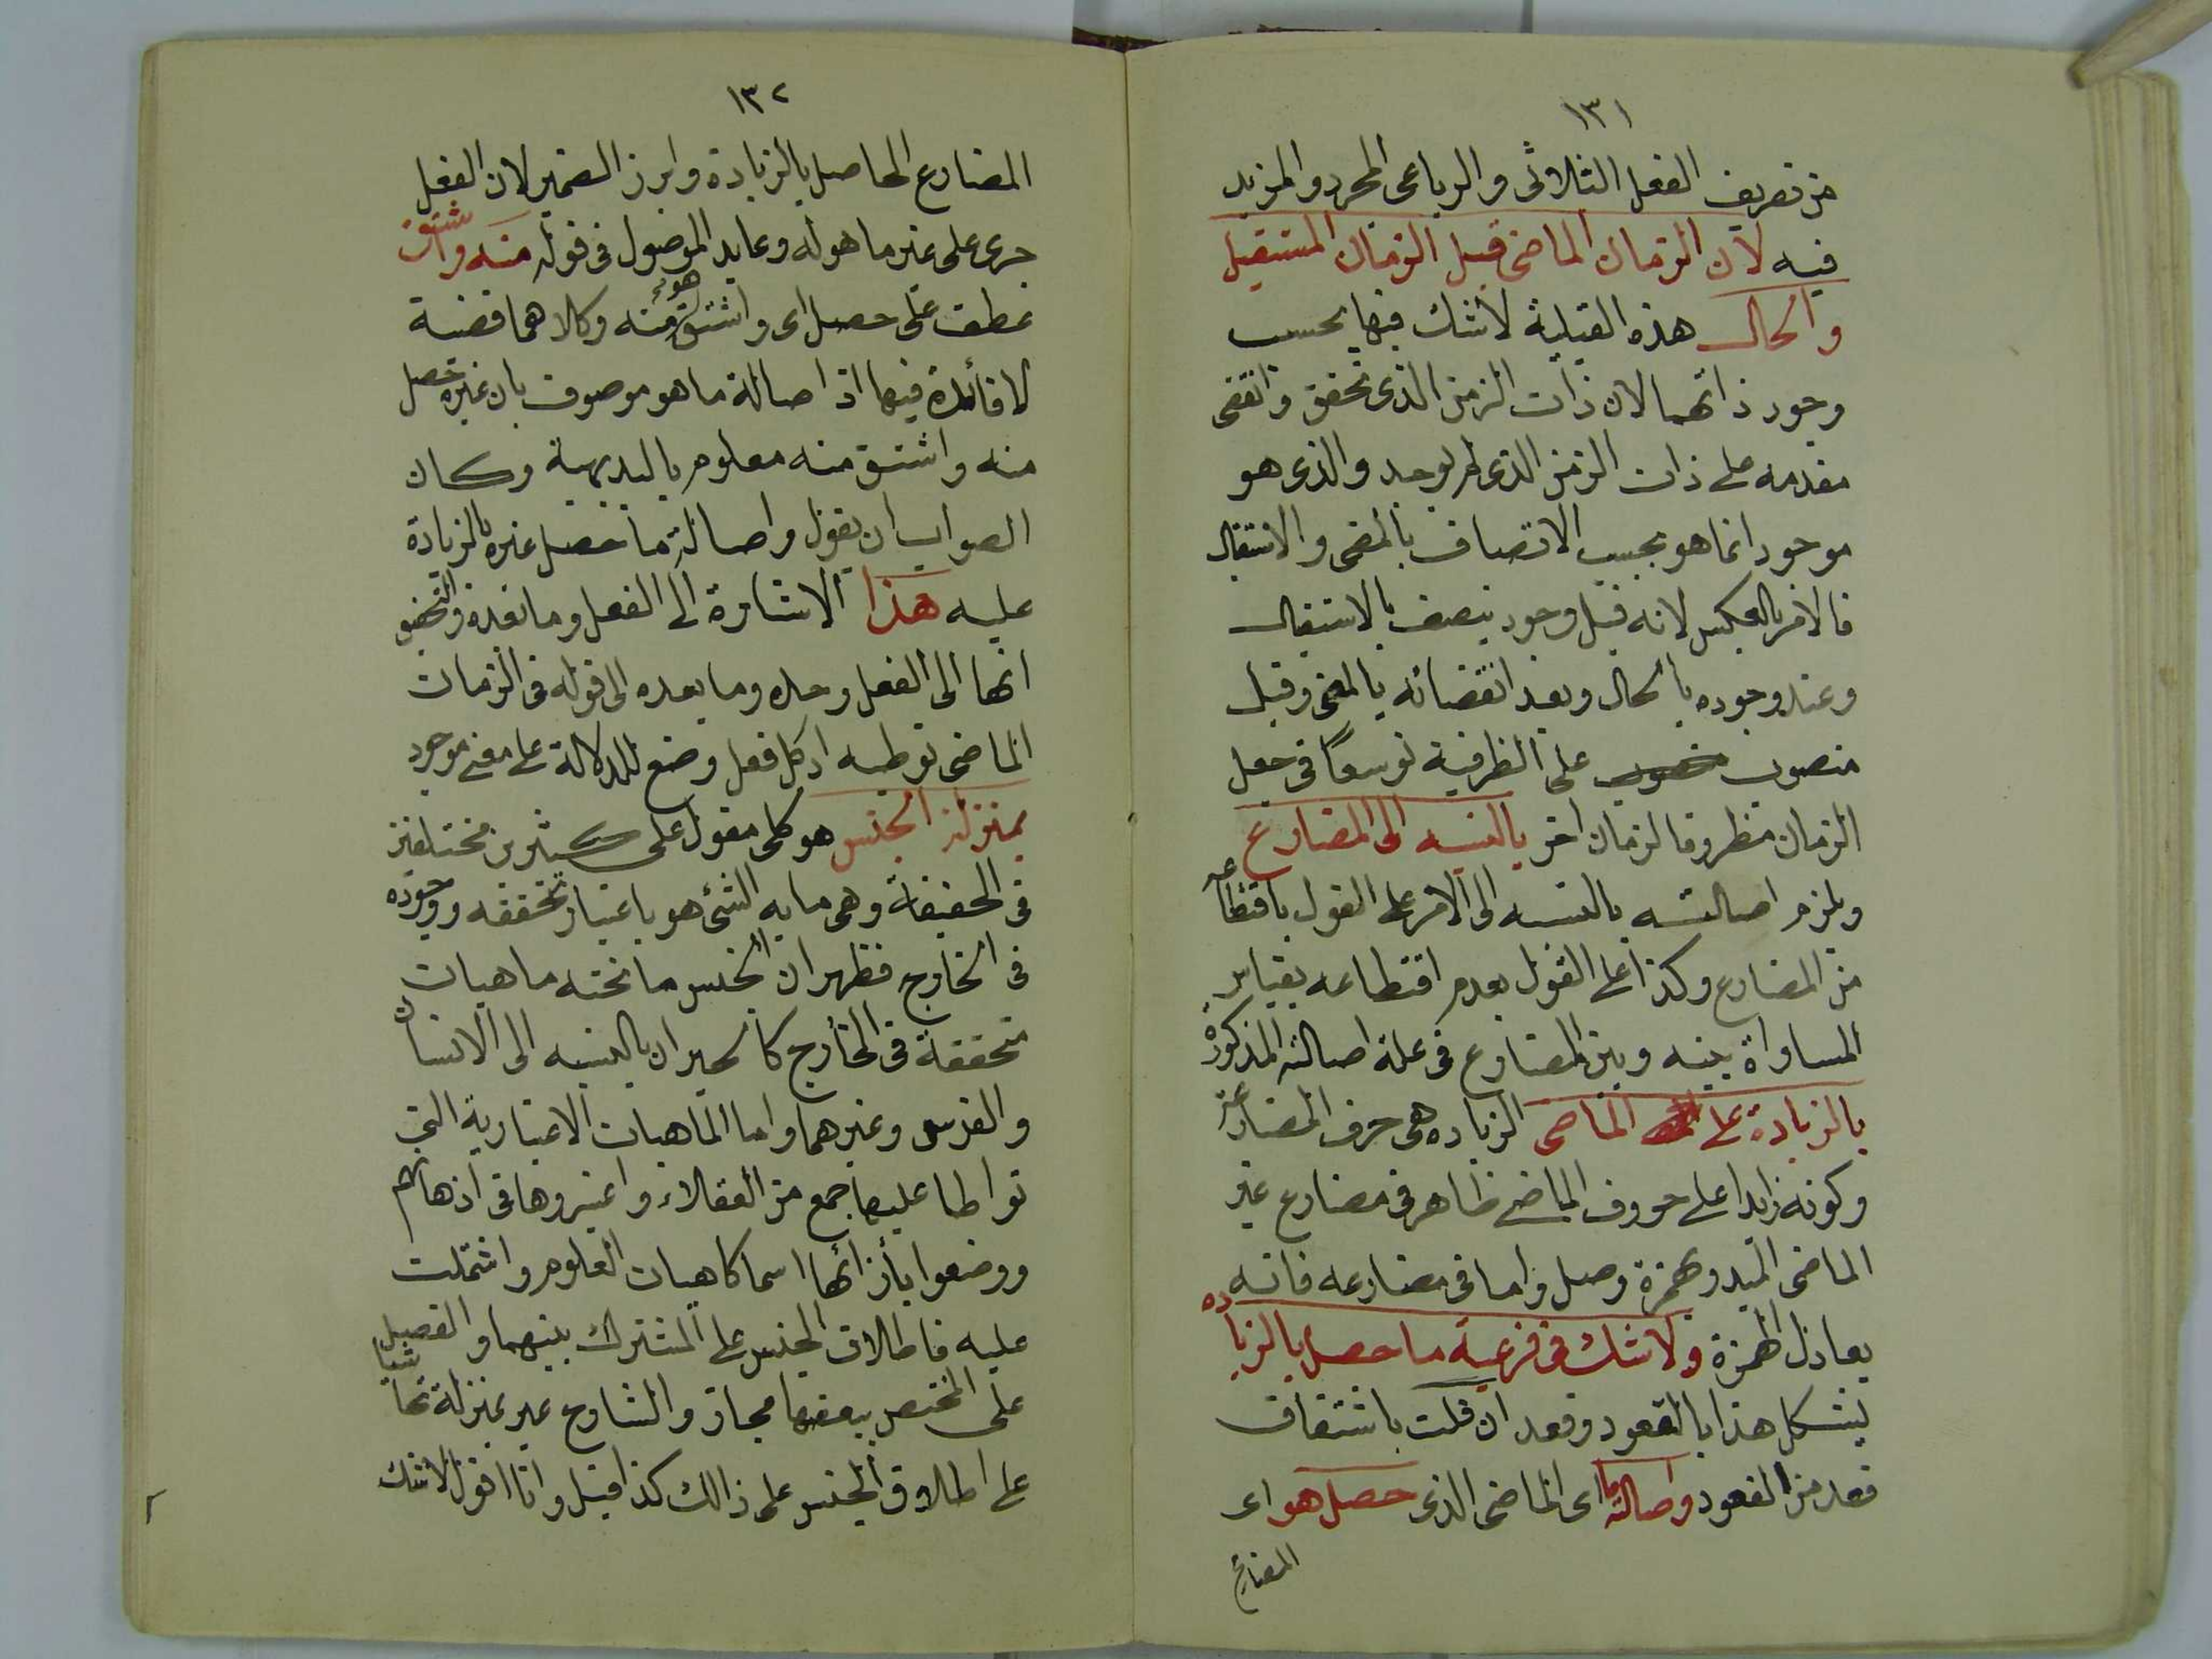 ١٣١
من تصريف الفعل الثلاثى والرباعى المجرد والمزيد
فيه لان الزمان الماضى قبل الزمان المستقبل
والحال هذه القبلية لاشك فيها بحسب
وجود ذاتهما لان ذات الزمن الذى تحقق وانقضى
مقدمه على ذات الزمن الذى لم يوجد والذى هو
موجود انما هو بحسب الاتصاف بالمضى والاستقبال
فالامر بالعكس لانه قبل وجود يتصف بالاستقبال
وعند وجوده بالحال وبعد انقضائه بالمضى وقبل
منصوب على الظرفية توسعا فى جعل
الزمان مظروفا لزمان اخر بالنسبه الى المضارع
ويلزم اصالته بالنسبه الى الامر على القول باقتطاعه
من المضارع وكذا على القول بعدم اقتطاعه بقياس
المساواة بينه وبين المضارع فى علة اصالته المذكورة
بالزيادة على الماضى الزياده هى حرف المضارعة
وكونه زايدا على حروف الماضى ظاهر فى مضارع غير
الماضى المبدو بهمزة وصل واما فى مضارعه فانه
يعادل الهمزة ولاشك فى فرعية ما حصل بالزياده
يشكل هذا بالقعود وقعد ان قلت باشتقاق
قعد من القعود واصالة ما اى الماضى الذى حصل هو اى
المضارع
١٣٢
المضارع الحاصل بالزيادة وابرز الضمير لان الفعل
جرى على غير ما هو له وعايد الموصول فى قوله منه واشتق
عطف على حصل اى واشتق هو منه وكلاهما قضية
لا فائدة فيها اذ اصالة ما هو موصوف بان غيره حصل
منه واشتق منه معلوم بالبديهية وكان
الصواب ان يقول واصالة ما حصل غيره بالزيادة
عليه هذا الاشارة الى الفعل وما بعده والتحقيق
انها الى الفعل وحده وما بعده الى قوله فى الزمان
الماضى توطيه اذ كل فعل وضع للدلالة على معنى موجود
بمنزلة الجنس هو كلى مقول على كثيرين مختلفين
فى الحقيقة وهى ما به الشئ هو باعتبار تحققه ووجوده
فى الخارج فظهر ان الجنس ما تحته ماهيات
متحققة فى الخارج كالحيوان بالنسبه الى الانسان
والفرس وغيرهما واما الماهيات الاعتبارية التى
تواطا عليها جمع من العقلاء واعتبروها فى اذهانهم
ووضعوا بأزائها اسما كاهيات العلوم واشتملت
عليه فاطلاق الجنس على المشترك بينهما والفصيل
على المختص ببعضها مجاز والشارح عبر بمنزلة تحاشيا
على اطلاق الجنس على ذالك كذا قيل وانا اقول لاشك